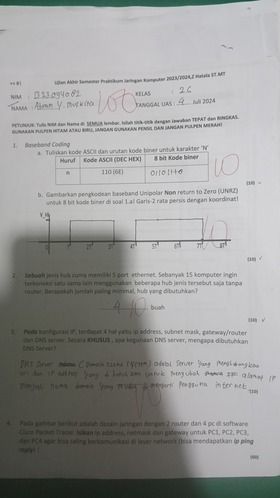 Ujian Akhir Semester Praktikum Jaringan Komputer 2023/2024,2 Hatala ST.MT
NIM :
KELAS : 2C
NAMA :
TANGGAL UAS : 9 Juli 2024
100
PETUNJUK: Tulis NIM dan Nama di SEMUA lembar. Isilah titik-titik dengan jawaban TEPAT dan RINGKAS.
GUNAKAN PULPEN HITAM ATAU BIRU, JANGAN GUNAKAN PENSIL DAN JANGAN PULPEN MERAH!
1. Baseband Coding
a. Tuliskan kode ASCII dan urutan kode biner untuk karakter 'N'
Huruf Kode ASCII (DEC HEX) 8 bit Kode biner
n 110 (6E) 01101110
10
(10)
b. Gambarkan pengkodean baseband Unipolar Non return to Zero (UNRZ)
untuk 8 bit kode biner di soal 1.a! Garis-2 rata persis dengan koordinat!
(10)
2. Sebuah jenis hub kuno memiliki 5 port ethernet. Sebanyak 15 komputer ingin
terkoneksi satu sama lain menggunakan beberapa hub jenis tersebut saja tanpa
router. Berapakah jumlah paling minimal, hub yang dibutuhkan?
4 buah
10
(10)
3. Pada konfigurasi IP, terdapat 4 hal yaitu ip address, subnet mask, gateway/router
dan DNS server. Secara KHUSUS, apa kegunaan DNS server, mengapa dibutuhkan
DNS Server?
DNS Server (Domain Name System) adalah Server yang
yang di butuhkan untuk mengubah alamat IP
menjadi nama domain yang pengguna internet
4. Pada gambar berikut adalah desain jaringan dengan 2 router dan 4 pc di software
Cisco Packet Tracer. Isikan ip address, netmask dan gateway untuk PC1, PC2, PC3,
dan PC4 agar bisa saling berkomunikasi di layer network (bisa mendapatkan ip ping
reply) !